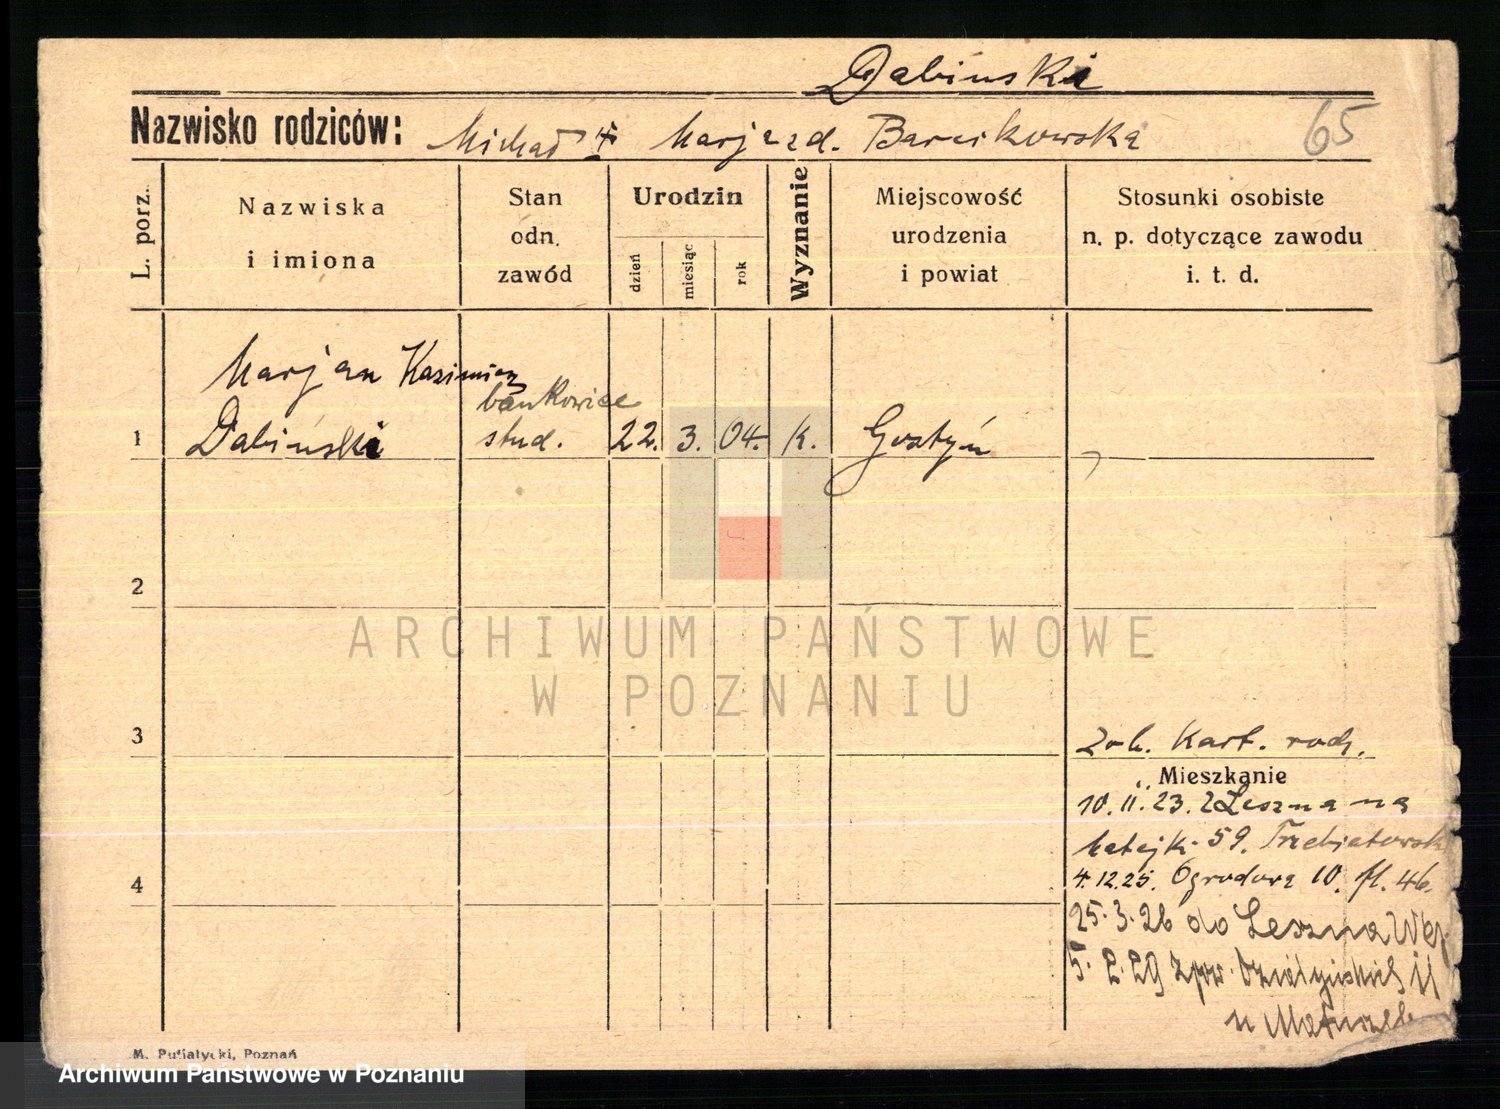 Dabiński
Nazwisko rodziców: Michał Marja zd. Barcikowska 65
L. porz.
Nazwiska
i imiona
Stan
odn.
zawód
Urodzin
dzień
miesiąc
rok
Wyznanie
Miejscowość
urodzenia
i powiat
Stosunki osobiste
n. p. dotyczące zawodu
i. t. d.
Marjan Kazimierz
bankowiec
1 Dabiński stud. 22. 3. 04. k. Gostyń
2
ARCHIWUM PAŃSTWOWE
W POZNANIU
3 Zob. Kart. rodz.
Mieszkanie
10.11.23. z Leszna na
Matejki 59.
4.12.25. Ogrodowa 10. fl. 46.
4
25.3.26 do Leszna
5.2.29 Działyńskich 11
u
M. Putiatycki, Poznań
Archiwum Państwowe w Poznaniu